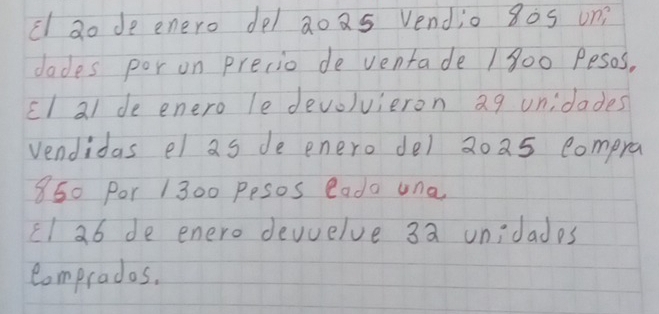 El 20 de enero del 2025 Vendio 805 uni
dades por un precio de venta de 1800 Pesos.
El 21 de enero le devolvieron 29 unidades
vendidas el 25 de enero del 2025 compra
850 Por 1300 pesos cada una
El 26 de enero devuelve 32 unidades
comprados.